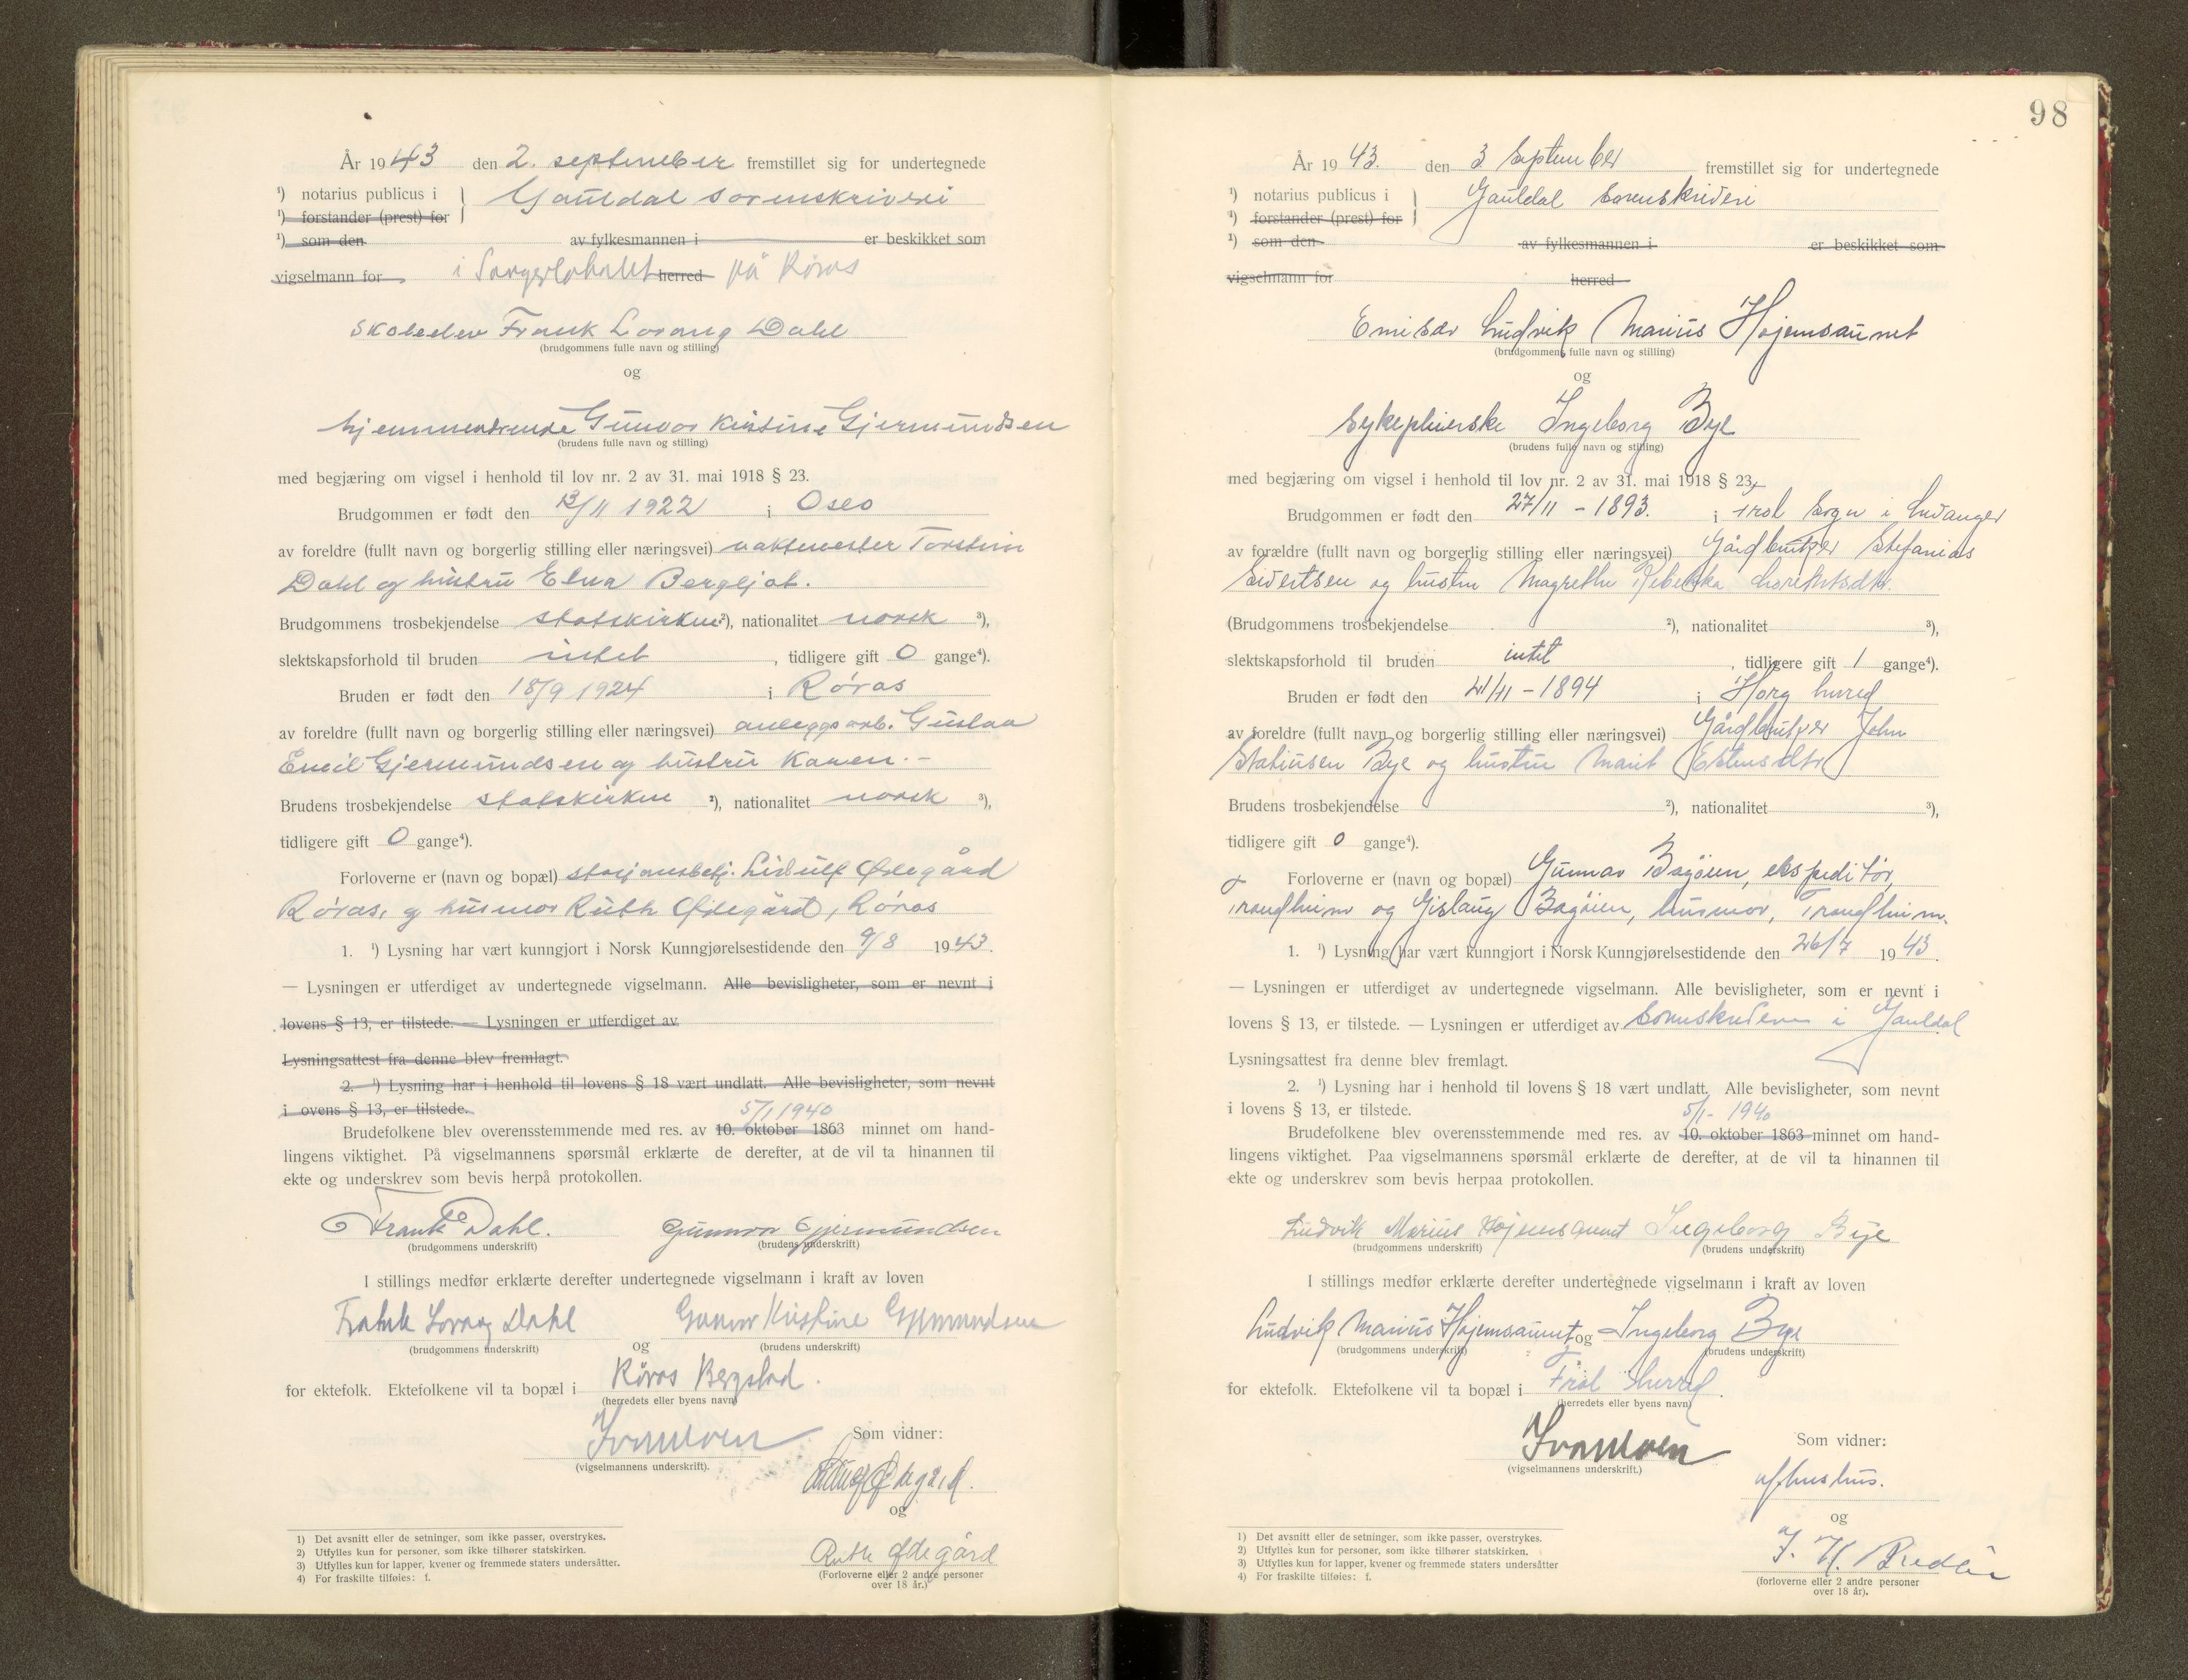 År 1943 den 2. september fremstillet sig for undertegnede
¹) notarius publicus i } Gauldal sorenskriveri
¹) forstander (prest) for
¹) som den av fylkesmannen i er beskikket som
vigselmann for i herred på Røros
skoleelev Frank Lorang Dahl
(brudgommens fulle navn og stilling)
og
hjemmeværende Gunvor Kristine Gjermundsen
(brudens fulle navn og stilling)
med begjæring om vigsel i henhold til lov nr. 2 av 31. mai 1918 § 23.
Brudgommen er født den 13/11 1922 i Oslo
av foreldre (fullt navn og borgerlig stilling eller næringsvei) vaktmester Torstein
Dahl og hustru Elna Bergljot.
Brudgommens trosbekjendelse statskirken ²), nationalitet norsk ³),
slektskapsforhold til bruden intet , tidligere gift 0 gange⁴).
Bruden er født den 18/9 1924 i Røros
av foreldre (fullt navn og borgerlig stilling eller næringsvei) anleggsarb. Gustav
Emil Gjermundsen og hustru Karen. -
Brudens trosbekjendelse statskirken ²), nationalitet norsk ³),
tidligere gift 0 gange⁴).
Forloverne er (navn og bopæl) stasjonsbetj. Lidulf Ødegård
Røros, og husmor Ruth Ødegård, Røros
1. ¹) Lysning har vært kunngjort i Norsk Kunngjørelsestidende den 9/8 1943.
— Lysningen er utferdiget av undertegnede vigselmann. Alle bevisligheter, som er nevnt i
lovens § 13, er tilstede. — Lysningen er utferdiget av
Lysningsattest fra denne blev fremlagt.
2. ¹) Lysning har i henhold til lovens § 18 vært undlatt. Alle bevisligheter, som nevnt
i ovens § 13, er tilstede.
5/1 1940
Brudefolkene blev overensstemmende med res. av 10. oktober 1863 minnet om hand-
lingens viktighet. På vigselmannens spørsmål erklærte de derefter, at de vil ta hinannen til
ekte og underskrev som bevis herpå protokollen.
Frank Dahl. Gunnvor Gjermundsen
(brudgommens underskrift) (brudens underskrift)
I stillings medfør erklærte derefter undertegnede vigselmann i kraft av loven
Frank Lorang Dahl Gunvor Kristine Gjermundsen
(brudgommens underskrift) og (brudens underskrift)
for ektefolk. Ektefolkene vil ta bopæl i Røros Bergstad.
(herredets eller byens navn)
Som vidner:
(vigselmannens underskrift).
Ødegård.
og
Ruth Ødegård
(Forloverne eller 2 andre personer
over 18 år.)
1) Det avsnitt eller de setninger, som ikke passer, overstrykes.
2) Utfylles kun for personer, som ikke tilhører statskirken.
3) Utfylles kun for lapper, kvener og fremmede staters undersåtter.
4) For fraskilte tilføies: f.
98
År 1943. den 3 September fremstillet sig for undertegnede
¹) notarius publicus i } Gauldal Sorenskriveri
¹) forstander (prest) for
¹) som den av fylkesmannen i er beskikket som
vigselmann for herred
Emisær Ludvik Marius Højemsaunet
(brudgommens fulle navn og stilling)
og
Sykepleierske Ingeborg Bye
(brudens fulle navn og stilling)
med begjæring om vigsel i henhold til lov nr. 2 av 31. mai 1918 § 23.
Brudgommen er født den 27/11 - 1893. i Frol Sogn i Levanger
av forældre (fullt navn og borgerlig stilling eller næringsvei) Gårdbruker Stefanias
Sivertsen og hustru Magrethe Rebekka Lorentsdtr.
(Brudgommens trosbekjendelse ²), nationalitet ³),
slektskapsforhold til bruden intet , tidligere gift 1 gange⁴).
Bruden er født den 21/11 - 1894 i Horg herred
av foreldre (fullt navn og borgerlig stilling eller næringsvei) Gårdbruker John
Statiusen Bye og hustru Marit Estensdtr
Brudens trosbekjendelse ²), nationalitet ³),
tidligere gift 0 gange⁴).
Forloverne er (navn og bopæl) Gunnar Bagøien, ekspeditør,
Trondheim og Gislaug Bagøien, husmor, Trondheim.
1. ¹) Lysning har vært kunngjort i Norsk Kunngjørelsestidende den 26/7 1943.
— Lysningen er utferdiget av undertegnede vigselmann. Alle bevisligheter, som er nevnt i
lovens § 13, er tilstede. — Lysningen er utferdiget av Sorenskriveren i Gauldal
Lysningsattest fra denne blev fremlagt.
2. ¹) Lysning har i henhold til lovens § 18 vært undlatt. Alle bevisligheter, som nevnt
i lovens § 13, er tilstede.
5/1- 1940
Brudefolkene blev overensstemmende med res. av 10. oktober 1863 minnet om hand-
lingens viktighet. Paa vigselmannens spørsmål erklærte de derefter, at de vil ta hinannen til
ekte og underskrev som bevis herpaa protokollen.
Ludvik Marius Højemsaunet Ingeborg Bye
(brudgommens underskrift) (brudens underskrift)
I stillings medfør erklærte derefter undertegnede vigselmann i kraft av loven
Ludvik Marius Højemsaunet og Ingeborg Bye
(brudgommens underskrift) (brudens underskrift)
for ektefolk. Ektefolkene vil ta bopæl i Frol herred.
(herredets eller byens navn)
Som vidner:
(vigselmannens underskrift.)
og
(forloverne eller 2 andre personer
over 18 år).
1) Det avsnitt eller de setninger, som ikke passer, overstrykes.
2) Utfylles kun for personer, som ikke tilhører statskirken.
3) Utfylles kun for lapper, kvener og fremmede staters undersåtter
4) For fraskilte tilføies: f.